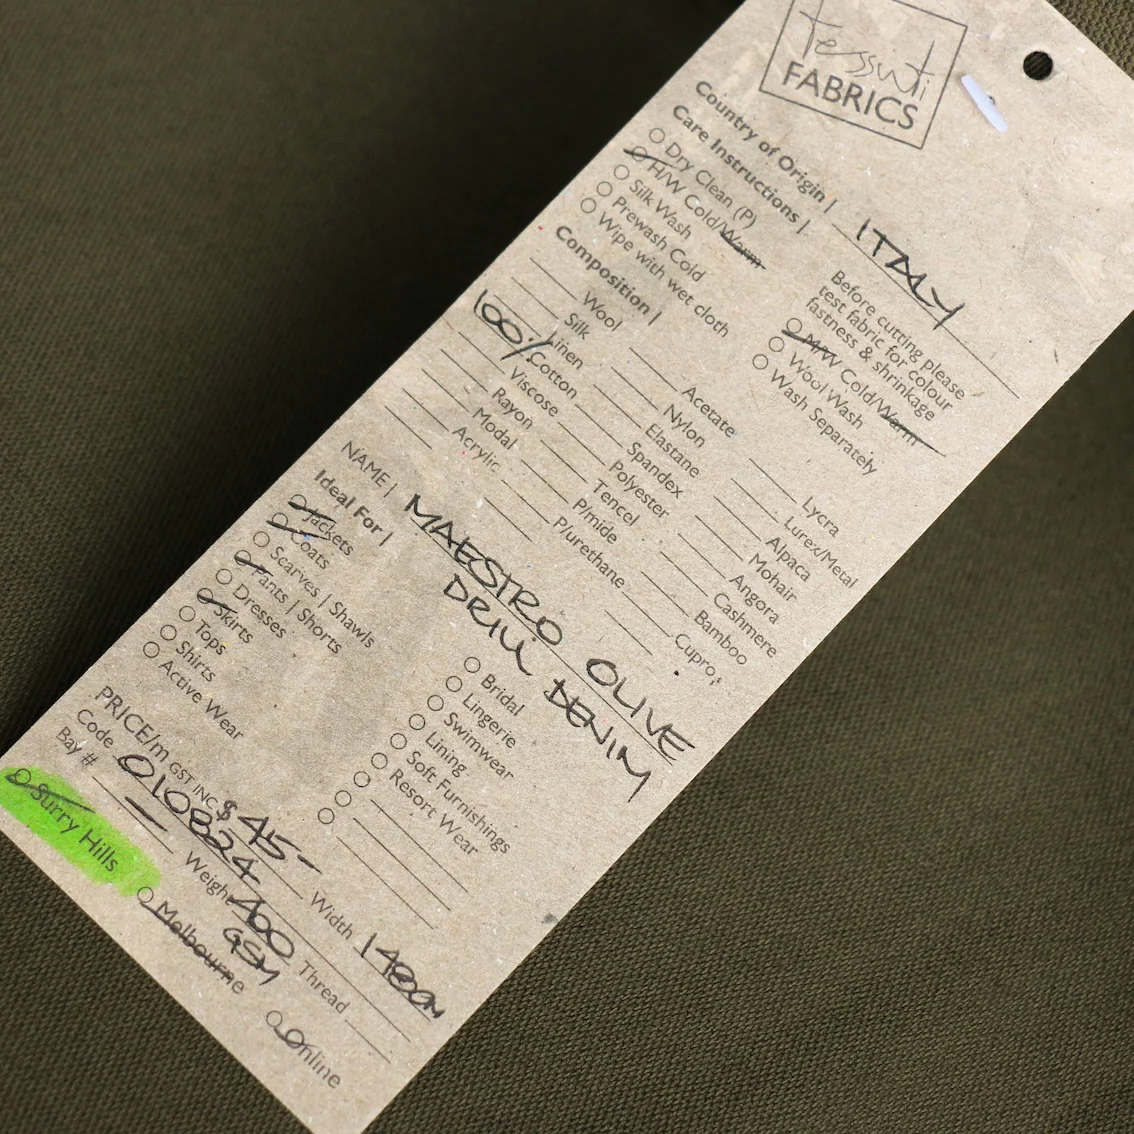 tessuti
FABRICS
Country of Origin | ITALY
Care Instructions |
Before cutting please
test fabric for colour
fastness & shrinkage
Dry Clean (P)
H/W Cold/Warm
Silk Wash
Prewash Cold
Wipe with wet cloth
M/W Cold/Warm
Wool Wash
Wash Separately
Composition |
Wool
Silk
Linen
100% Cotton
Viscose
Rayon
Modal
Acrylic
Acetate
Nylon
Elastane
Spandex
Polyester
Tencel
P/mide
P/urethane
Lycra
Lurex/Metal
Alpaca
Mohair
Angora
Cashmere
Bamboo
Cupro
NAME | MAESTRO OLIVE
DRILL DENIM
Ideal For |
Jackets
Coats
Scarves | Shawls
Pants | Shorts
Dresses
Skirts
Tops
Shirts
Active Wear
Bridal
Lingerie
Swimwear
Lining
Soft Furnishings
Resort Wear
PRICE/m GST INC $45- Width 148cm
Code 010824 Weight 400 GSM Thread
Bay # —
Surry Hills
Melbourne
Online